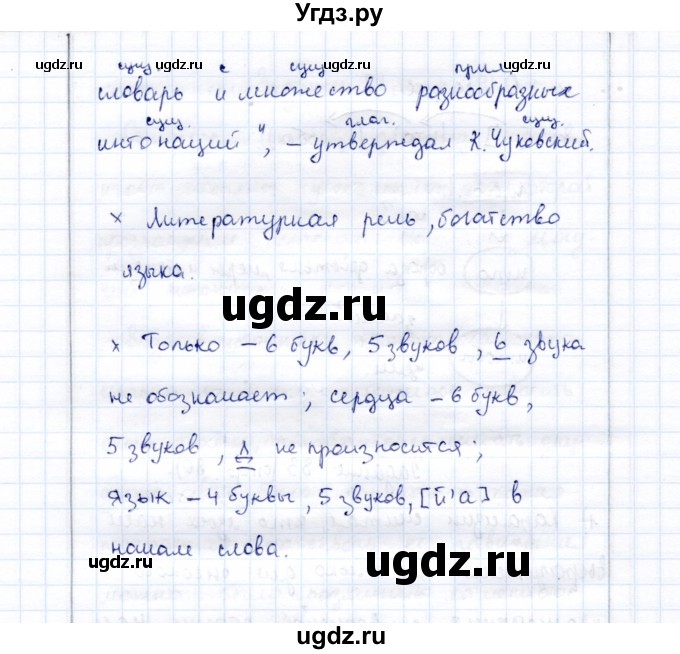 Угдз.ру
ugdz.ru ugdz.ru ugdz.ru
сущ. с сущ. прил.
словарь и множество разнообразных
сущ. глаг. сущ.
интонаций", – утверждал К. Чуковский.
ugdz.ru ugdz.ru
× Литературная речь, богатство
языка.
ugdz.ru
× Только – 6 букв, 5 звуков, ь звука
не обозначает; сердца – 6 букв,
5 звуков, д не произносится;
ugdz.ru ugdz.ru
язык – 4 буквы, 5 звуков, [й'а] в
начале слова.
ugdz.ru
ugdz.ru ugdz.ru ugdz.ru
ugdz.ru